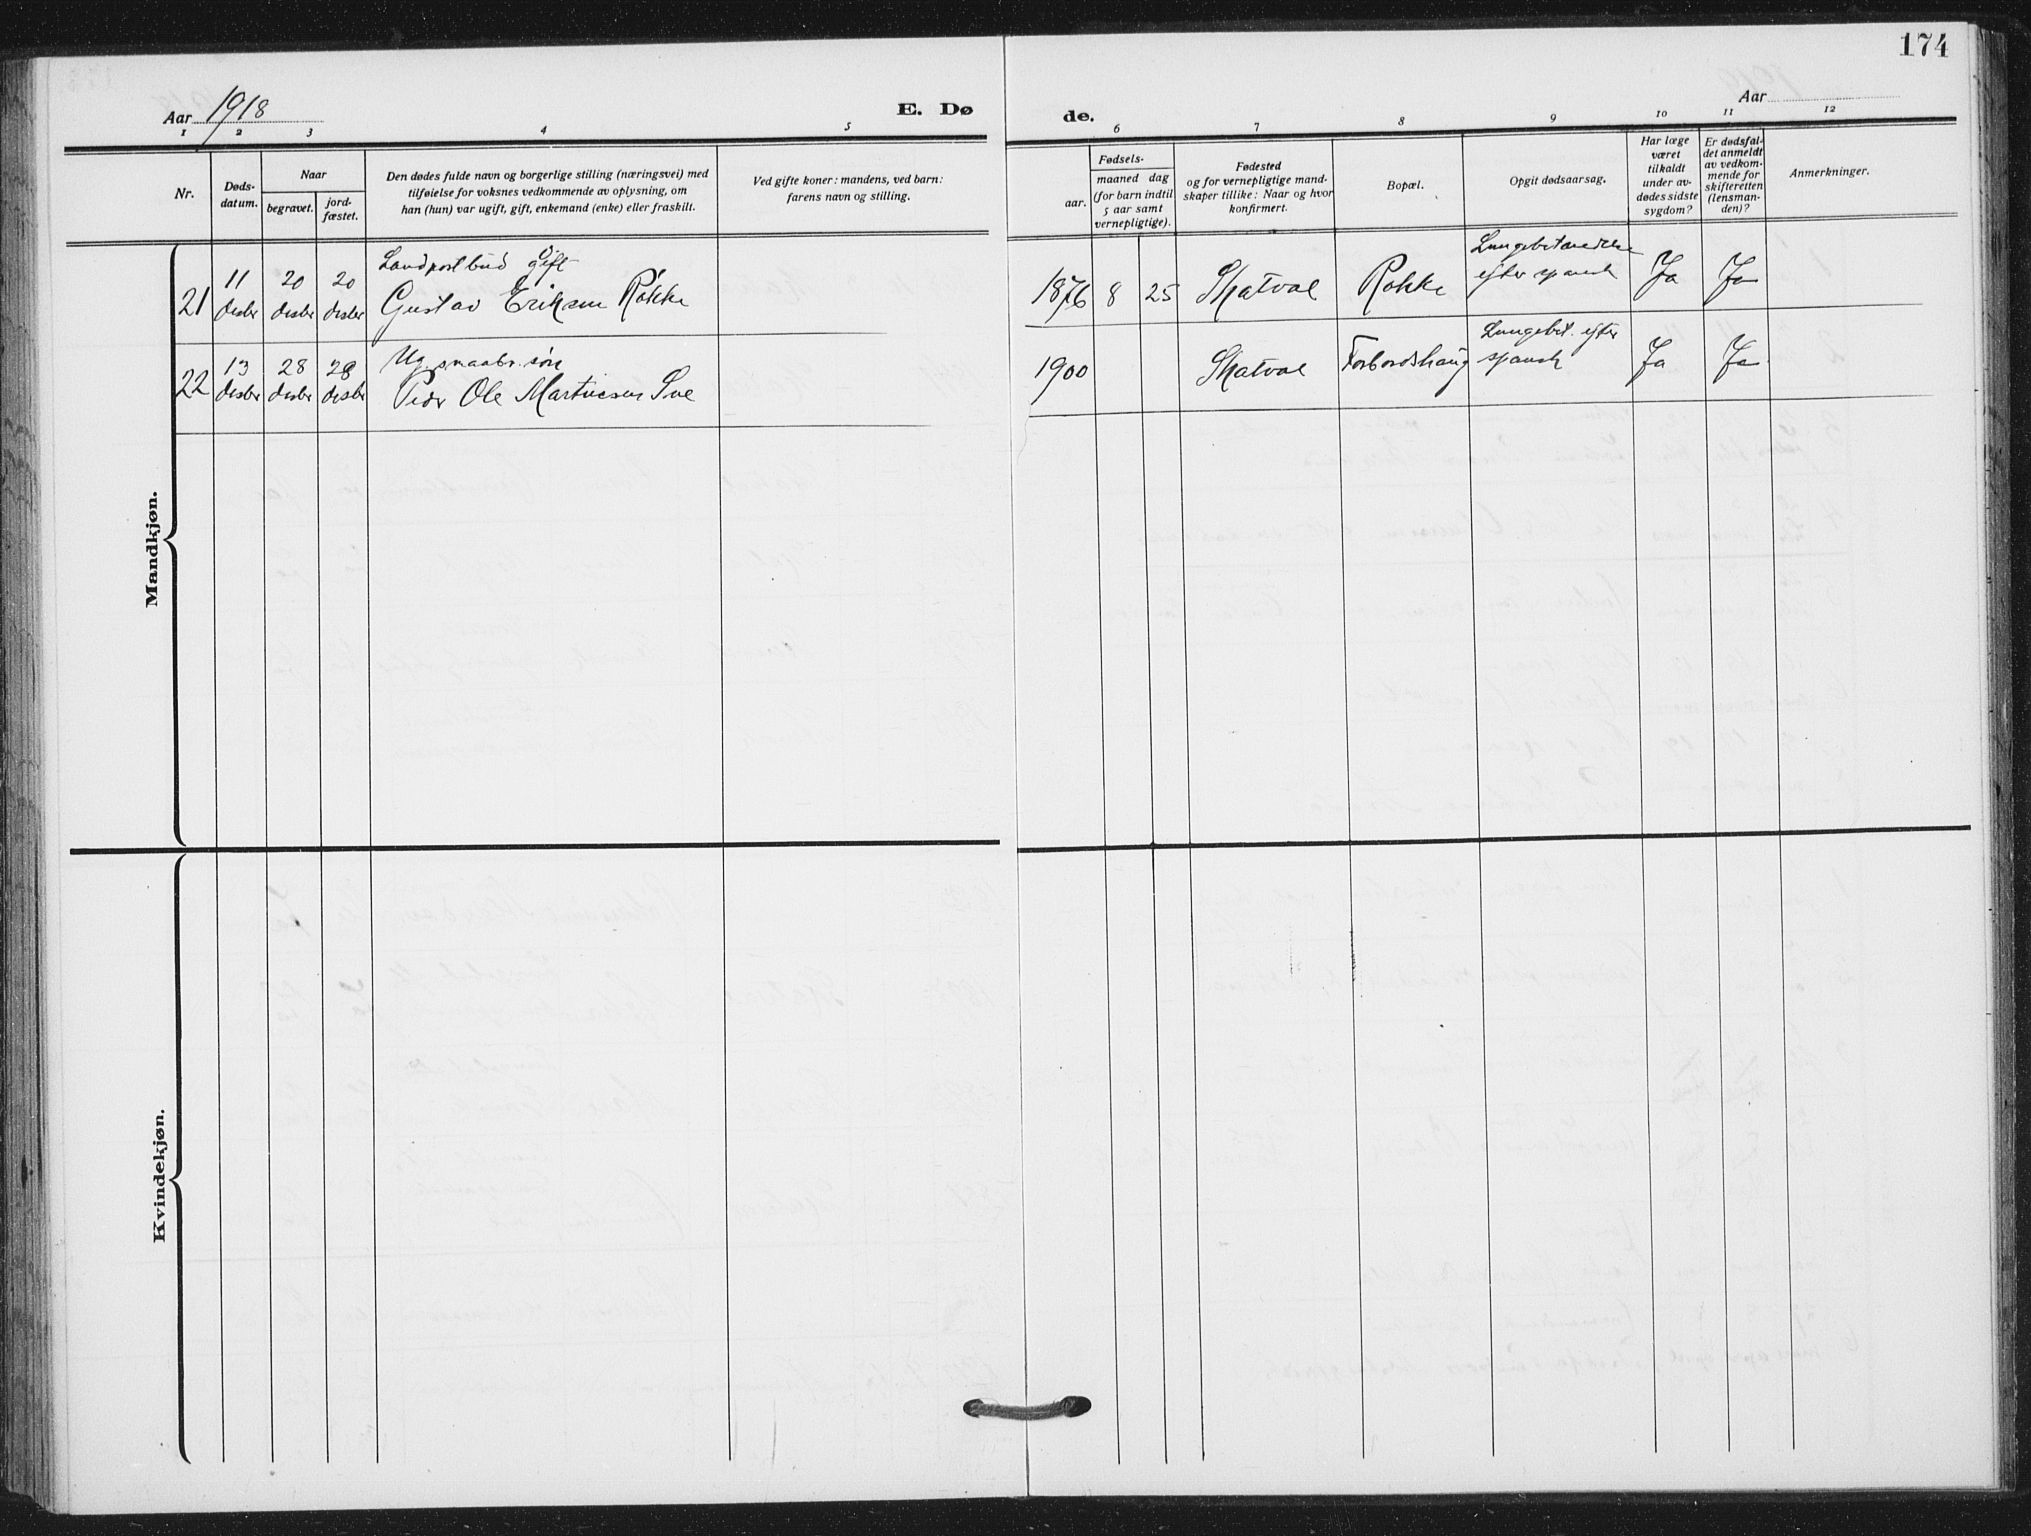 174
Aar 1918
E. Dø
de.
Aar
1 2 3 4 5
6 7 8 9 10 11 12
Nr.
Døds-
datum.
Naar
begravet.
jord-
fæstet.
Den dødes fulde navn og borgerlige stilling (næringsvei) med
tilføielse for voksnes vedkommende av oplysning, om
han (hun) var ugift, gift, enkemand (enke) eller fraskilt.
Ved gifte koner: mandens, ved barn:
farens navn og stilling.
Fødsels-
aar.
maaned dag
(for barn indtil
5 aar samt
vernepligtige).
Fødested
og for vernepligtige mand-
skaper tillike: Naar og hvor
konfirmert.
Bopæl.
Opgit dødsaarsag.
Har læge
været
tilkaldt
under av-
dødes sidste
sygdom?
Er dødsfal-
det anmeldt
av vedkom-
mende for
skifteretten
(lensman-
den)?
Anmerkninger.
Mandkjøn.
21
11
desbr
20
desbr
20
desbr
Landpostbud gift
Gustav Eriksen Røkke
1876 8 25
Skatval
Røkke
Lungebetændelse
efter spansk
Ja
Ja
22
13
desbr
28
desbr
28
desbr
Ug. smaabr. søn
Peder Ole Martinsen Sve
1900
Skatval
Forbordshaug
Lungebet. efter
spansk
Ja
Ja
Kvindekjøn.